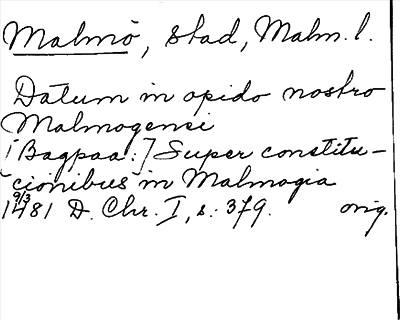 Malmö, stad, Malm. l.
Datum in opido nostro
Malmogensi
[Bagpaa:] Super constitu-
cionibus in Malmogia
9/3
1481 D. Chr. I, s. 379. orig.